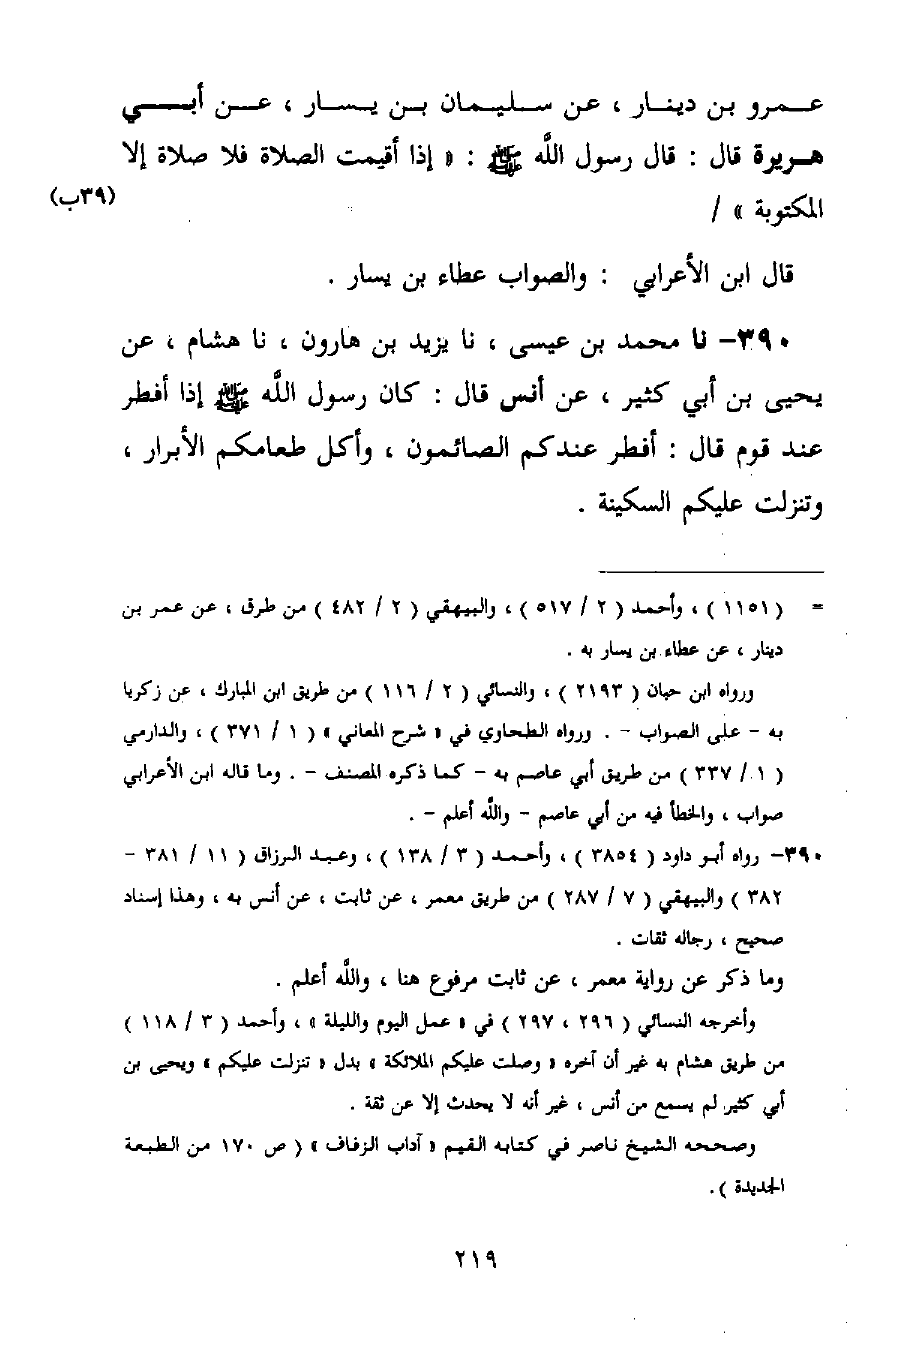 عمرو بن دينار ، عن سليمان بن يسار ، عن أبي
هريرة قال : قال رسول الله ﷺ : « إذا أقيمت الصلاة فلا صلاة إلا
المكتوبة » /
(٣٩ب)
قال ابن الأعرابي : والصواب عطاء بن يسار .
٣٩٠- نا محمد بن عيسى ، نا يزيد بن هارون ، نا هشام ، عن
يحيى بن أبي كثير ، عن أنس قال : كان رسول الله ﷺ إذا أفطر
عند قوم قال : أفطر عندكم الصائمون ، وأكل طعامكم الأبرار ،
وتنزلت عليكم السكينة .
= ( ١١٥١ ) ، وأحمد ( ٢ / ٥١٧ ) ، والبيهقي ( ٢ / ٤٨٢ ) من طرق ، عن عمر بن
دينار ، عن عطاء بن يسار به .
ورواه ابن حبان ( ٢١٩٣ ) ، والنسائي ( ٢ / ١١٦ ) من طريق ابن المبارك ، عن زكريا
به - على الصواب - . ورواه الطحاوي في « شرح المعاني » ( ١ / ٣٧١ ) ، والدارمي
( ١ / ٣٣٧ ) من طريق أبي عاصم به - كما ذكره المصنف - . وما قاله ابن الأعرابي
صواب ، والخطأ فيه من أبي عاصم - والله أعلم - .
٣٩٠- رواه أبو داود ( ٣٨٥٤ ) ، وأحمد ( ٣ / ١٣٨ ) ، وعبد الرزاق ( ١١ / ٣٨١ -
٣٨٢ ) والبيهقي ( ٧ / ٢٨٧ ) من طريق معمر ، عن ثابت ، عن أنس به ، وهذا إسناد
صحيح ، رجاله ثقات .
وما ذكر عن رواية معمر ، عن ثابت مرفوع هنا ، والله أعلم .
وأخرجه النسائي ( ٢٩٦ ، ٢٩٧ ) في « عمل اليوم والليلة » ، وأحمد ( ٣ / ١١٨ )
من طريق هشام به غير أن آخره « وصلت عليكم الملائكة » بدل « تنزلت عليكم » ويحيى بن
أبي كثير لم يسمع من أنس ، غير أنه لا يحدث إلا عن ثقة .
وصححه الشيخ ناصر في كتابه القيم « آداب الزفاف » ( ص ١٧٠ من الطبعة
الجديدة ) .
٢١٩